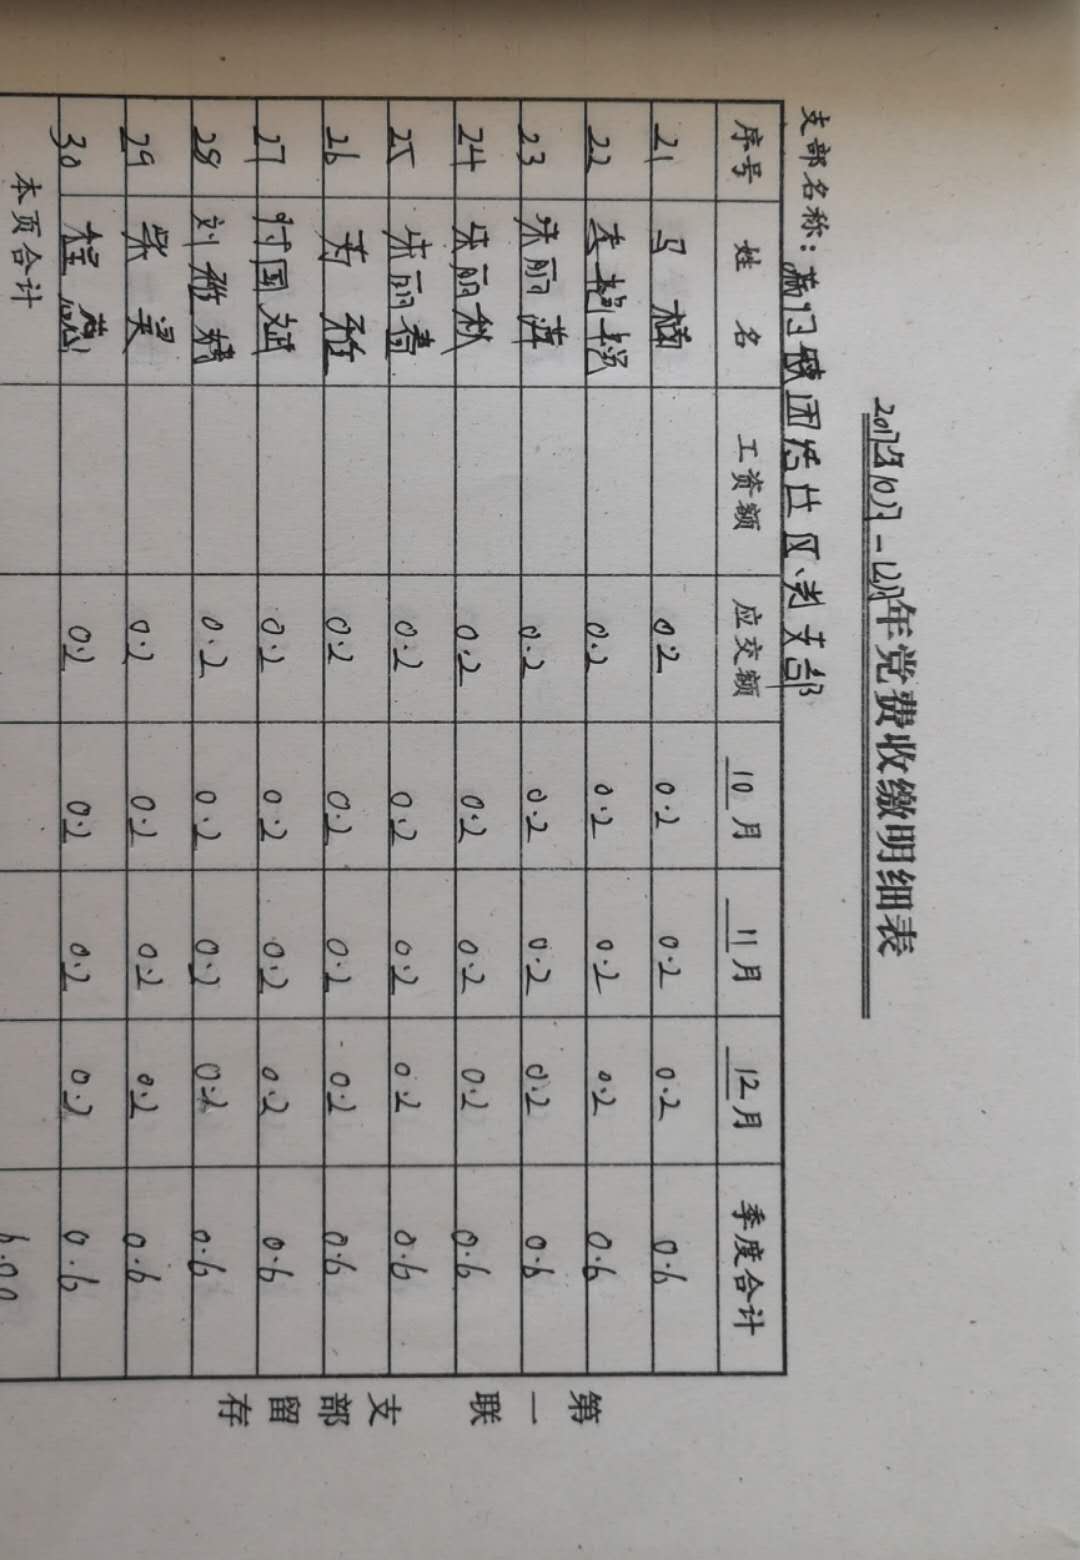 2017年10月-12月年党费收缴明细表
支部名称：蓟门里团结社区党支部
序号 姓名 工资额 应交额 10月 11月 12月 季度合计
21 马楠 0.2 0.2 0.2 0.2 0.6
22 0.2 0.2 0.2 0.2 0.6
23 朱丽萍 0.2 0.2 0.2 0.2 0.6
24 朱丽秋 0.2 0.2 0.2 0.2 0.6
25 朱丽春 0.2 0.2 0.2 0.2 0.6
26 雅 0.2 0.2 0.2 0.2 0.6
27 付国斌 0.2 0.2 0.2 0.2 0.6
28 刘雅婧 0.2 0.2 0.2 0.2 0.6
29 柴昊 0.2 0.2 0.2 0.2 0.6
30 程 0.2 0.2 0.2 0.2 0.6
本页合计 6.00
第一联 支部留存